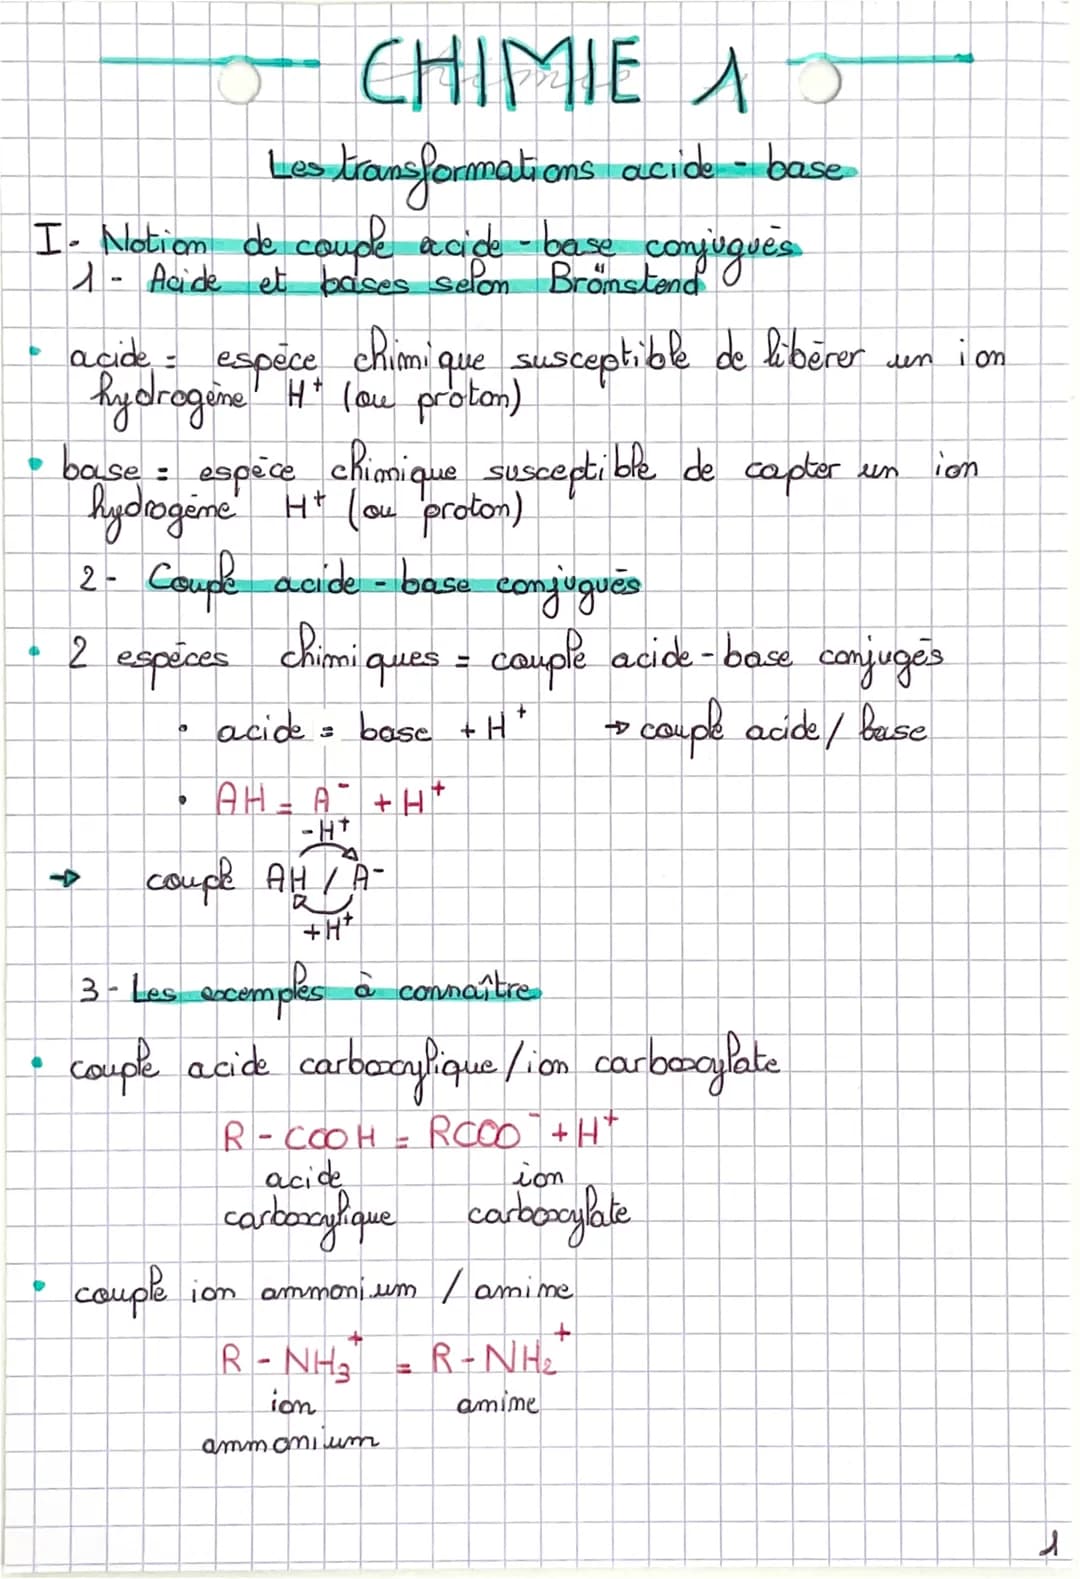 CHIMIE 1
Les transformations acide - base
I - Notion de couple acide - base conjugués
1 - Acide et bases selon Brönstend
• acide = espèce chimique susceptible de libérer un ion
hydrogène H⁺ (ou proton)
• base = espèce chimique susceptible de capter un ion
hydrogène H⁺ (ou proton)
2 - Couple acide - base conjugués
• 2 espèces chimiques = couple acide - base conjugés
• acide = base + H⁺ → couple acide / base
• AH = A⁻ + H⁺
- H⁺
→ couple AH / A⁻
+ H⁺
3 - Les exemples à connaître
• couple acide carboxylique / ion carboxylate
R - COOH = RCOO⁻ + H⁺
acide ion
carboxylique carboxylate
• couple ion ammonium / amine
R - NH₃⁺ = R - NH₂⁺
ion amine
ammonium
1